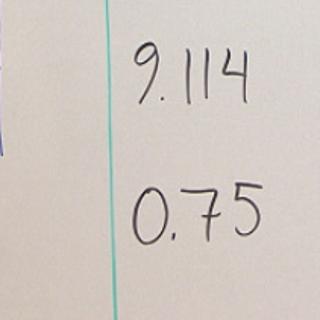 9.114
0.75